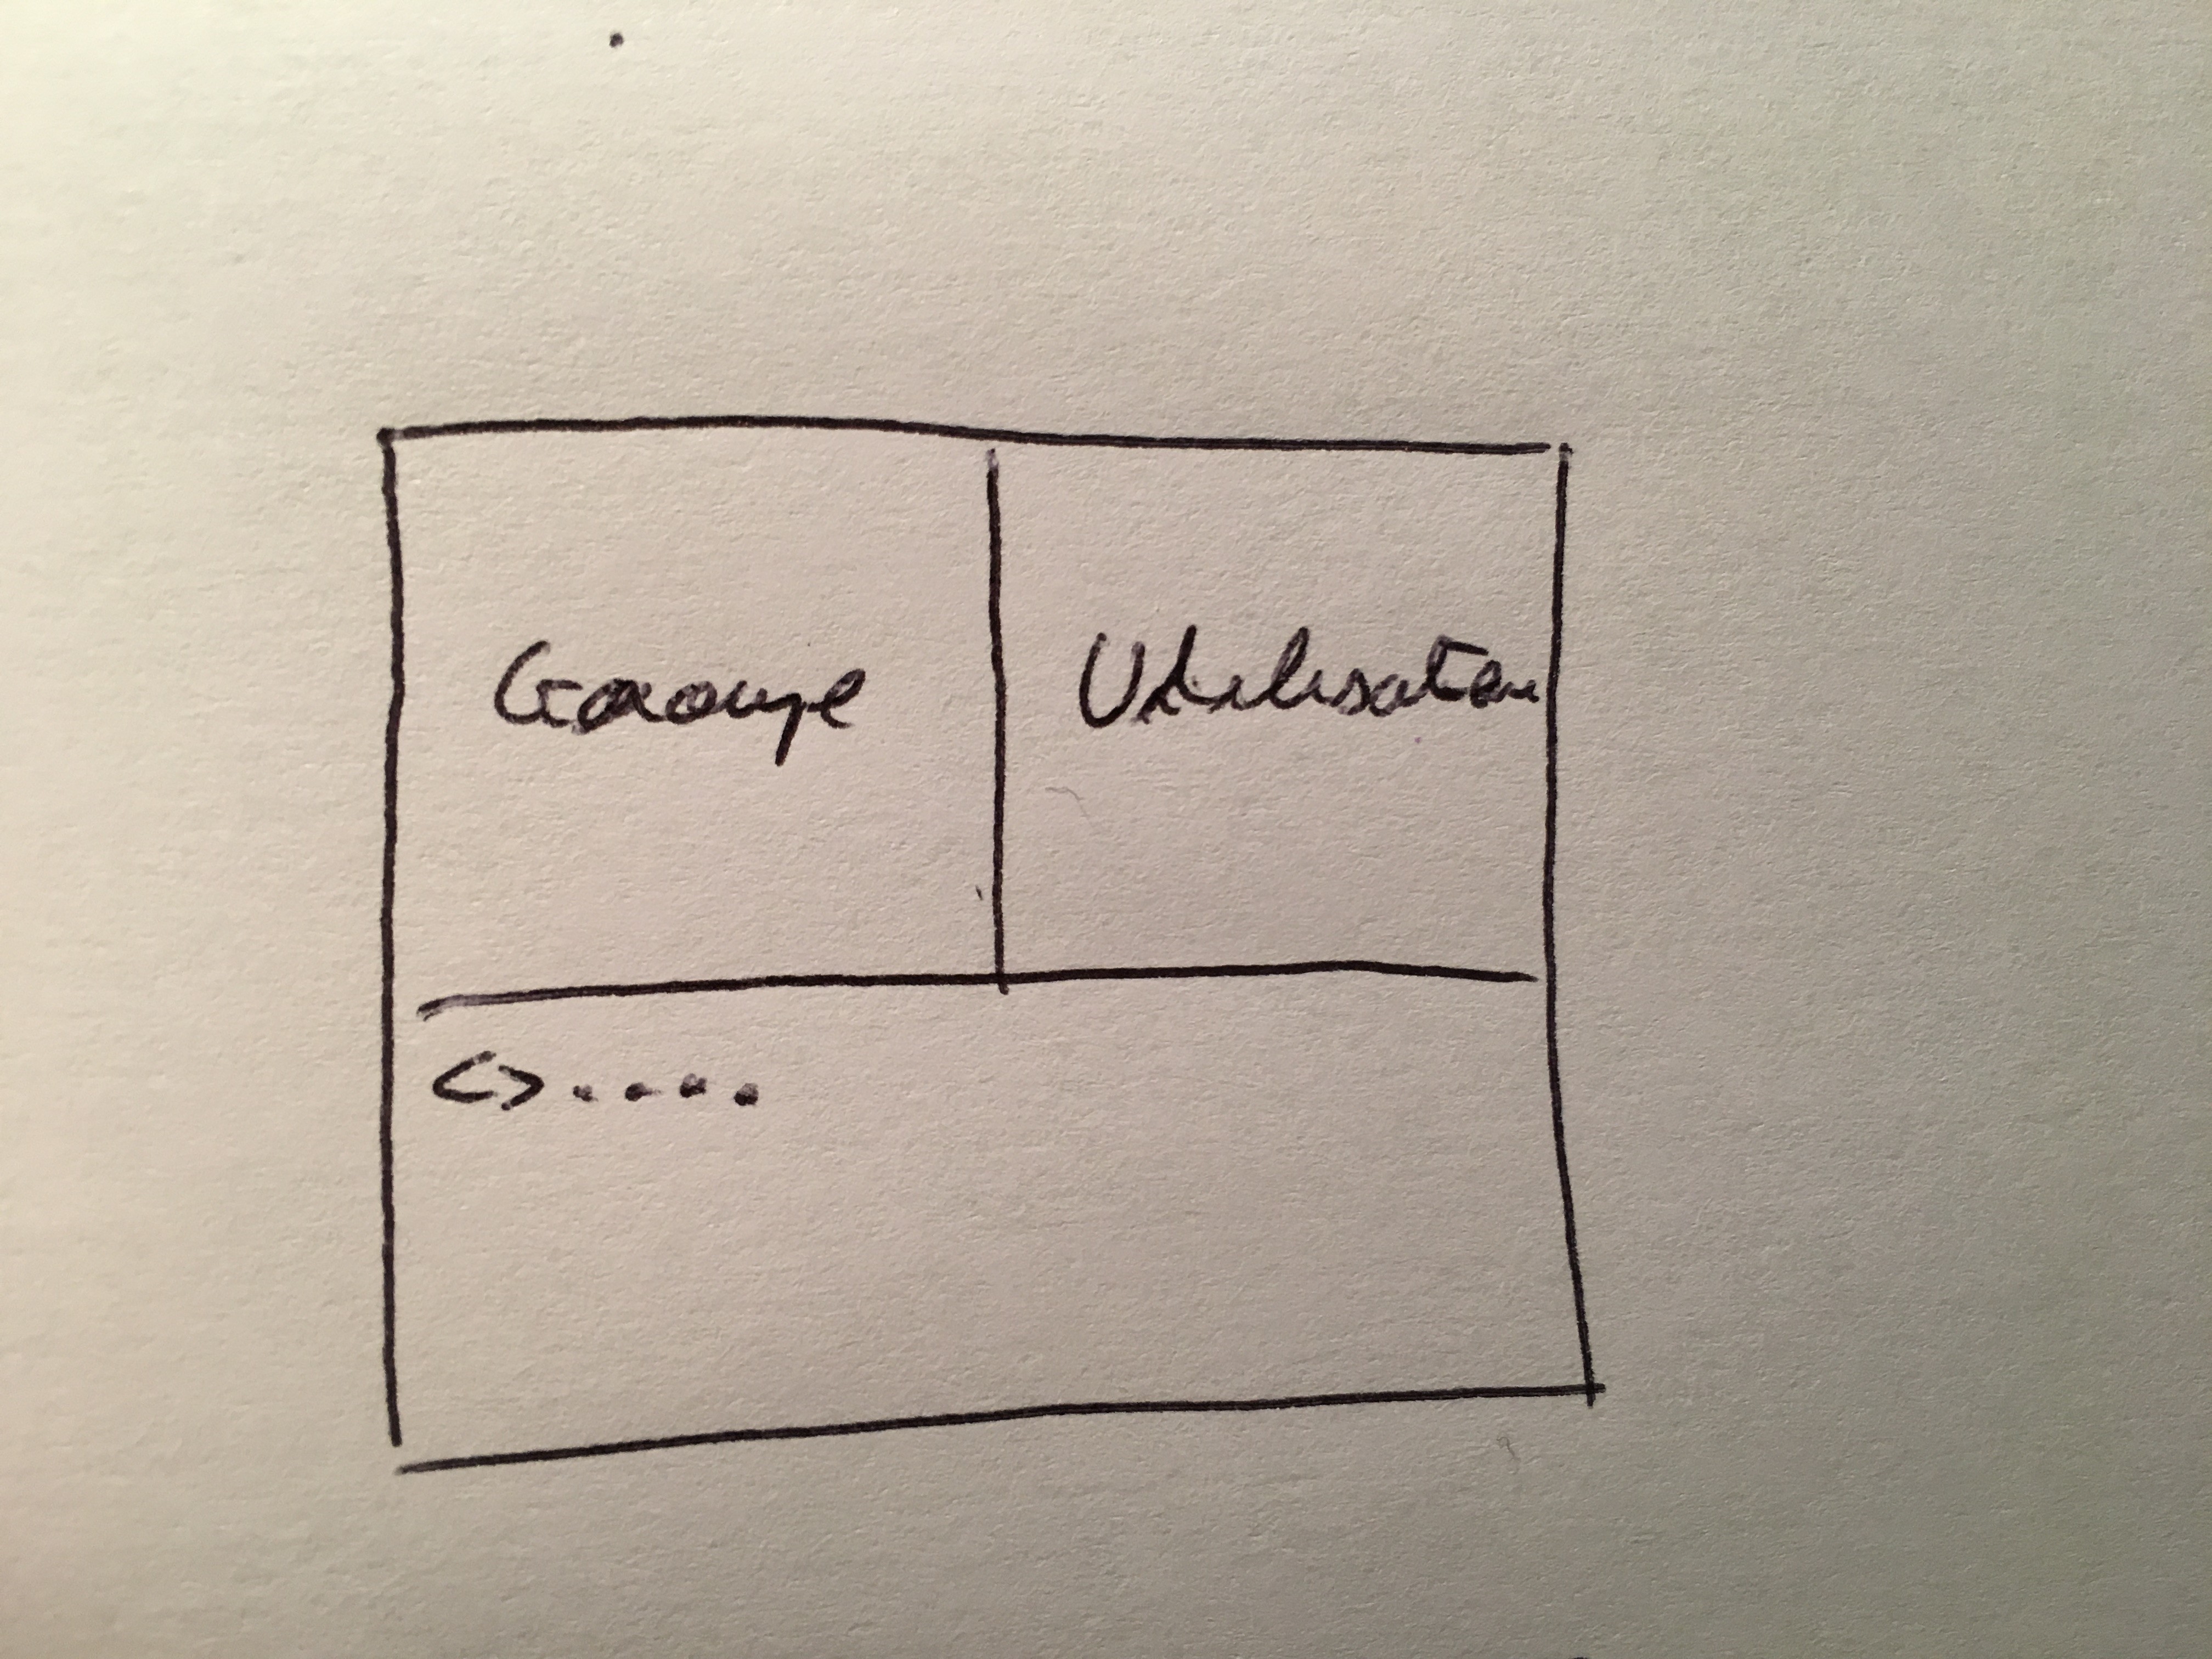 Groupe
Utilisateur
<>....